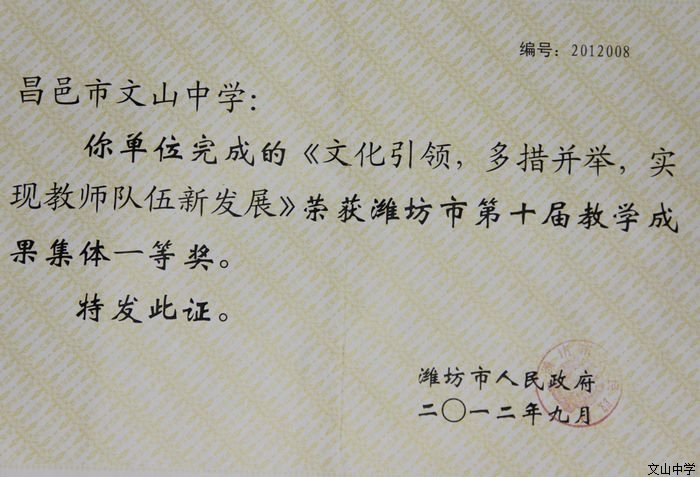 编号：2012008
昌邑市文山中学：
你单位完成的《文化引领，多措并举，实
现教师队伍新发展》荣获潍坊市第十届教学成
果集体一等奖。
特发此证。
潍坊市人民政府
二〇一二年九月
文山中学